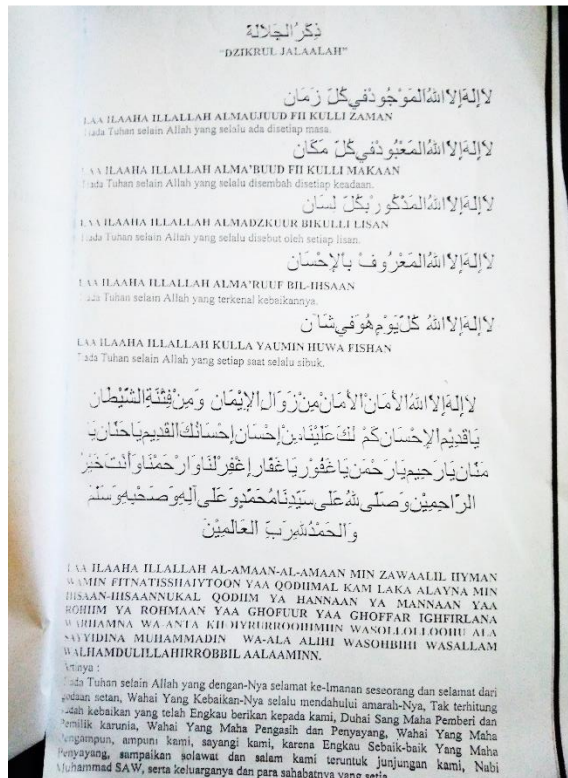 ذِكْرُ الْجَلَالَةِ
"DZIKRUL JALAALAH"
لَا إِلَهَ إِلَّا اللهُ الْمَوْجُودْ فِي كُلِّ زَمَان
LAA ILAAHA ILLALLAH ALMAUJUUD FII KULLI ZAMAN
Tiada Tuhan selain Allah yang selalu ada disetiap masa.
لَا إِلَهَ إِلَّا اللهُ الْمَعْبُودْ فِي كُلِّ مَكَان
LAA ILAAHA ILLALLAH ALMA'BUUD FII KULLI MAKAAN
Tiada Tuhan selain Allah yang selalu disembah disetiap keadaan.
لَا إِلَهَ إِلَّا اللهُ الْمَذْكُورْ بِكُلِّ لِسَان
LAA ILAAHA ILLALLAH ALMADZKUUR BIKULLI LISAN
Tiada Tuhan selain Allah yang selalu disebut oleh setiap lisan.
لَا إِلَهَ إِلَّا اللهُ الْمَعْرُوفْ بِالْإِحْسَان
LAA ILAAHA ILLALLAH ALMA'RUUF BIL-IHSAAN
Tiada Tuhan selain Allah yang terkenal kebaikannya.
لَا إِلَهَ إِلَّا اللهُ كُلَّ يَوْمٍ هُوَ فِي شَان
LAA ILAAHA ILLALLAH KULLA YAUMIN HUWA FISHAN
Tiada Tuhan selain Allah yang setiap saat selalu sibuk.
لَا إِلَهَ إِلَّا اللهُ الْأَمَانْ الْأَمَانْ مِنْ زَوَالِ الْإِيْمَان وَمِنْ فِتْنَةِ الشَّيْطَان
يَا قَدِيْمَ الْإِحْسَان كَمْ لَكَ عَلَيْنَا مِنْ إِحْسَان إِحْسَانُكَ الْقَدِيْم يَا حَنَّان يَا
مَنَّان يَا رَحِيْم يَا رَحْمَن يَا غَفُوْر يَا غَفَّار إِغْفِرْ لَنَا وَارْحَمْنَا وَأَنْتَ خَيْرُ
الرَّاحِمِيْنَ وَصَلَّى اللهُ عَلَى سَيِّدِنَا مُحَمَّدٍ وَعَلَى آلِهِ وَصَحْبِهِ وَسَلَّمَ
وَالْحَمْدُ لِلهِ رَبِّ الْعَالَمِيْنَ
LAA ILAAHA ILLALLAH AL-AMAAN-AL-AMAAN MIN ZAWAALIL IIYMAN
WAMIN FITNATISSHAIYTOON YAA QODIIMAL KAM LAKA ALAYNA MIN
IHSAAN-IHSAANNUKAL QODIIM YA HANNAAN YA MANNAAN YAA
ROHIIM YA ROHMAAN YAA GHOFUUR YAA GHOFFAR IGHFIRLANA
WARHAMNA WA-ANTA KHOIYRURROOHIMIIN WASOLLOLLOOHU ALA
SAYYIDINA MUHAMMADIN WA-ALA ALIHI WASOHBIHI WASALLAM
WALHAMDULILLAHIRROBBIL AALAAMINN.
Artinya :
Tiada Tuhan selain Allah yang dengan-Nya selamat ke-Imanan seseorang dan selamat dari
godaan setan, Wahai Yang Kebaikan-Nya selalu mendahului amarah-Nya, Tak terhitung
sudah kebaikan yang telah Engkau berikan kepada kami, Duhai Sang Maha Pemberi dan
Pemilik karunia, Wahai Yang Maha Pengasih dan Penyayang, Wahai Yang Maha
Pengampun, ampuni kami, sayangi kami, karena Engkau Sebaik-baik Yang Maha
Penyayang, sampaikan solawat dan salam kami teruntuk junjungan kami, Nabi
Muhammad SAW, serta keluarganya dan para sahabatnya yang setia